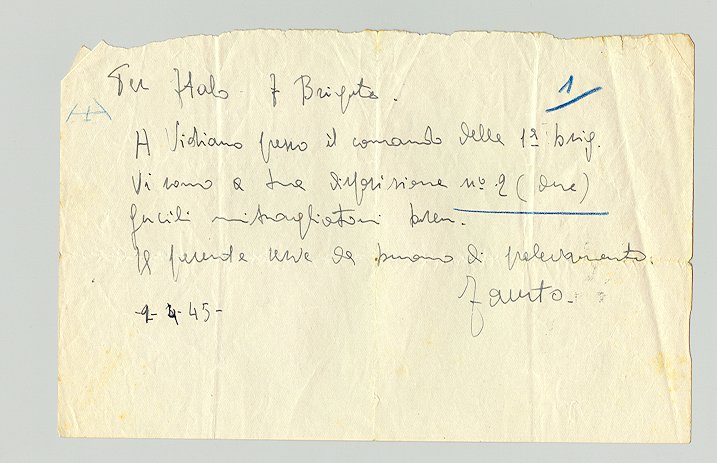 Per Italo 7 Brigata.
1
A Vidiano presso il comando della 1ª brig.
Vi sono a tua disposizione nº 2 (due)
fucili mitragliatori bren.
Il presente serve da buono di prelevamento.
Fausto.
-2-4-45-